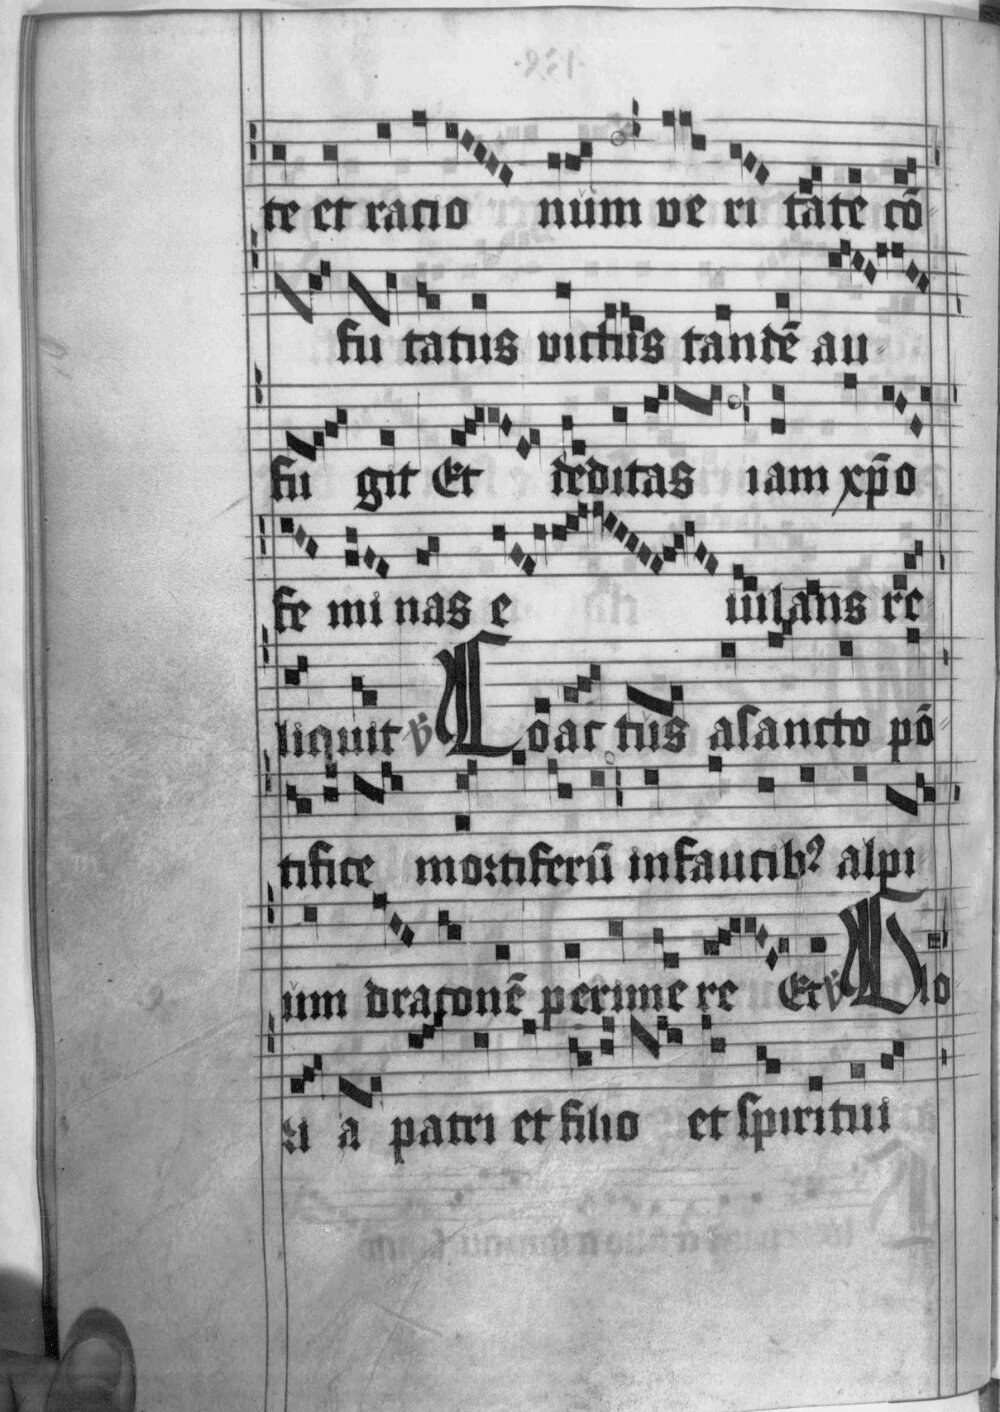 te et racio num ve ri tate cō
fu tatus victus tandē au
fu git Et deditas iam xp̄o
fe mi nas e iulans re
liquit ℣ Coac tus a sancto pō
tifice mortiferū in faucibꝰ alpi
um draconē perime re Et ℣ Glo
ri a patri et filio et spiritui